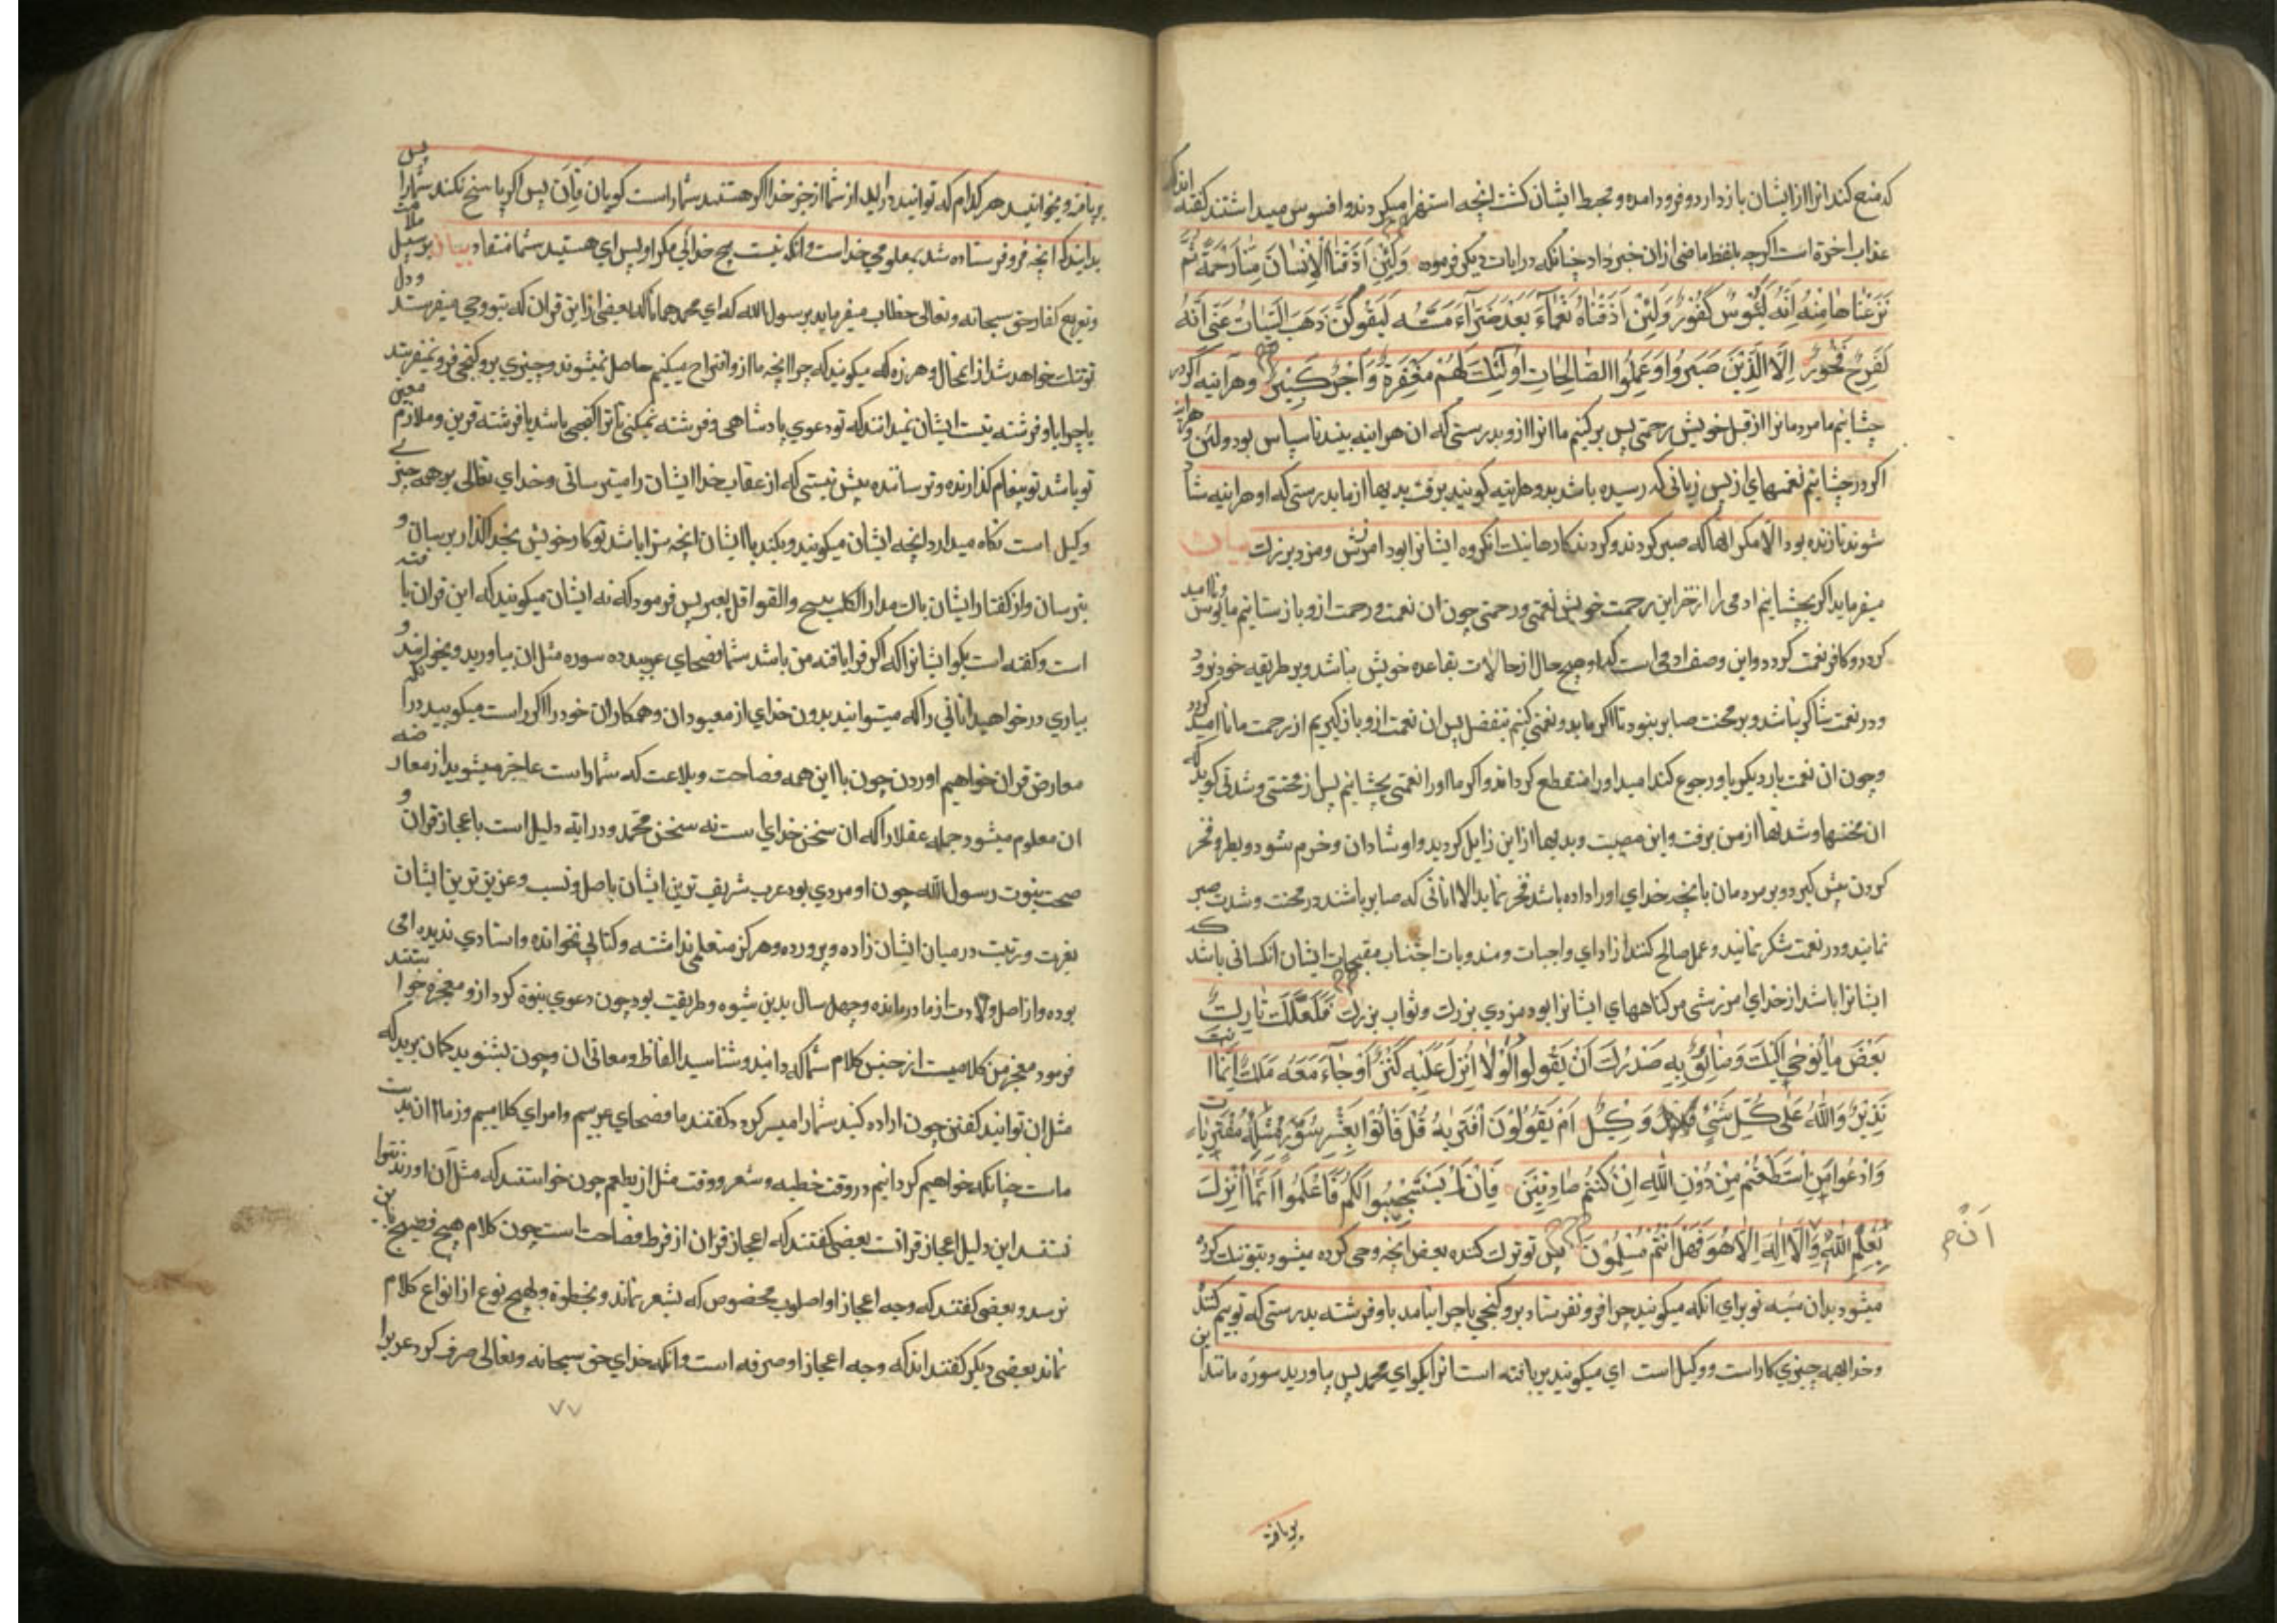 که منع کند انرا از ایشان باز دارد و فرود امد و محیط ایشان کشت انچه استهزا میکردند و افسوس میداشتند کفته اند که
عذاب اخرة است اکرچه بلفظ ماضی ازان خبر داد چنانکه در ایات دیکر فرموده وَلَئِنْ اَذَقْنَا الْاِنْسَانَ مِنَّا رَحْمَةً ثُمَّ
نَزَعْنَاهَا مِنْهُ اِنَّهُ لَيَؤُسٌ كَفُوْرٌ وَلَئِنْ اَذَقْنَاهُ نَعْمَاءَ بَعْدَ ضَرَّاءَ مَسَّتْهُ لَيَقُوْلَنَّ ذَهَبَ السَّيِّاٰتُ عَنِّى اِنَّهُ
لَفَرِحٌ فَخُوْرٌ اِلَّا الَّذِيْنَ صَبَرُوْا وَعَمِلُوا الصَّالِحَاتِ اُولٰئِكَ لَهُمْ مَغْفِرَةٌ وَاَجْرٌ كَبِيْرٌ وهراینه اکر در
چشانیم ما مردمانرا از قبل خویش رحمتی پس برکنیم ما انرا ازو بدرستی که ان هراینه بیند ناسپاس بود ولئن و هراینه
اکر در چشانیم نعمتهای از پس زیانی که رسیده باشد بدو هراینه کویند برفت بدیها از ما بدرستی که او هراینه شاد
شوند نازنده بود الا مکر انها که صبر کردند و کردند کارها نیک انکروه ایشانرا بود امرزش ومزد بزرک بیان
میفرماید اکر بچشانیم ادمی را از رحمت خویش نعمتی و رحمتی چون ان نعمت و رحمت ازو باز ستانیم مایوس و ناامید
کردد و کافر نعمت کردد و این وصف ادمی است که او هیچ حال از حالات بقاعده خویش نباشد و بر طریقه خود نرود
و در نعمت شاکر نباشد و بر محنت صابر نبود تا اکر ما بدو نعمتی کنیم بتفضل پس ان نعمت ازو باز کیریم از رحمت ما ناامید کردد
و چون ان نعمت بار دیکر باو رجوع کند امید اورا منقطع کرداند و اکر ما اورا نعمتی بچشانیم پس از محنتی و شدتی کوید که
ان محنتها و شدتها از من برفت و این مصیبت و بدیها از این زایل کردید و او شادان و خرم شود و بطر و فخر
کردن پیش کیرد و بر مردمان بانچه خدای اورا داده باشد فخر نماید الا انانی که صابر باشند در محنت و شدت صبر
نمایند و در نعمت شکر نمایند و عمل صالح کنند از ادای واجبات و مندوبات اجتناب مقبحات ایشان انکسانی باشند که
ایشانرا باشد از خدای امرزشی مر کناههای ایشانرا بود مزدی بزرک و ثواب بزرک فَلَعَلَّكَ تَارِكٌ
بَعْضَ مَا يُوْحٰى اِلَيْكَ وَضَائِقٌ بِهِ صَدْرُكَ اَنْ يَقُوْلُوا لَوْلَا اُنْزِلَ عَلَيْهِ كَنْزٌ اَوْ جَاءَ مَعَهُ مَلَكٌ اِنَّمَا اَنْتَ
نَذِيْرٌ وَاللّٰهُ عَلٰى كُلِّ شَىْءٍ وَكِيْلٌ اَمْ يَقُوْلُوْنَ افْتَرٰيهُ قُلْ فَأْتُوْا بِعَشْرِ سُوَرٍ مِثْلِهِ مُفْتَرَيَاتٍ
وَادْعُوْا مَنِ اسْتَطَعْتُمْ مِنْ دُوْنِ اللّٰهِ اِنْ كُنْتُمْ صَادِقِيْنَ فَاِنْ لَمْ يَسْتَجِيْبُوا لَكُمْ فَاعْلَمُوْا اَنَّمَا اُنْزِلَ
بِعِلْمِ اللّٰهِ وَاَنْ لَا اِلٰهَ اِلَّا هُوَ فَهَلْ اَنْتُمْ مُسْلِمُوْنَ پس تو ترک کننده بعض انچه وحی کرده میشود بتو تنک کرده
میشود بدان سینه تو برای انکه میکویند چرا فرو نفرستاد برو کنجی یا چرا نیامد باو فرشته بدرستی که تو بیم کننده
و خدا بهمه چیزی کار است و وکیل است ای میکویند بربافته است انرا بکو ای محمد پس بیاورید سوره مانند این
بربافته
بربافته و بخوانید هر کدام که توانید از شما از جز خدا اکر هستید شما راست کویان فَاِنْ پس اکر پاسخ نکنند شمارا پس
بدانید که انچه فرو فرستاده شد بعلم وحی خداست و انکه نیست هیچ خدائی مکر او پس ای هستید شما منقاد بیان بر سبیل ملامت
و تقریع کفار حق سبحانه و تعالی خطاب میفرماید برسول الله که ای محمد همانا که بعضی ازاین قران که بتو وحی میفرستد و دل
تو تنک خواهد شد از انحال و هرزه که میکویند که چرا انچه ما ازو اقتراح میکنیم حاصل نمیشوند و چیزی برو کنجی فرو نمیفرستد
یا چرا باو فرشته نیست ایشان نمیدانند که تو دعوی پادشاهی و فرشته نمیکنی تا ترا کنجی باشد یا فرشته قرین و ملازم معین
تو باشد تو پیغام کذارنده و ترساننده بیش نیستی که از عقاب خدا ایشان را میترسانی و خدای تعالی بر همه چیز
وکیل است نکاه میدارد انچه ایشان میکویند و بکند با ایشان انچه سزا باشد تو کار خویش بخدا کذار برسان و
بترسان و از کفتار ایشان باک مدار پس فرمود که نه ایشان میکویند که این قران بافته
است و کفته است بکو ایشانرا که اکر فرا بافته من باشد شما فصحای عربید ده سوره مثل ان بیاورید و بخوانید و
بیاری در خواهید انانی را که میتوانید بدون خدای از معبودان و همکاران خود را اکر راست میکویید
معارض قران خواهیم اوردن چون با این همه فصاحت و بلاغت که شما راست عاجز میشوید از معارضه
ان معلوم میشود جمله عقلا را که ان سخن خدای است نه سخن محمد و در ایة دلیل است باعجاز قران و
صحت نبوت رسول الله چون او مردی بود عرب شریف ترین ایشان باصل و نسب و عزیز ترین ایشان
در میان ایشان زاده و پرورده و هرکز متعلمی نداشته و کتابی نخوانده و استادی ندیده امی
بوده و از اصل ولادت از مادر مانده و چهل سال بدین شیوه و طریقت بود چون دعوی نبوة کرد ازو معجزه خواستند
فرمود معجز من کلامیست از جنس کلام شما که دانید و شناسید الفاظ و معانی ان و چون بشنوید کمان برید که
مثل ان توانید کفتن چون اراده کنید شما را میسر کردد کفتند ما فصحای عربیم و امرای کلامیم و زمام ان بدست
ماست چنانکه خواهیم کردانیم در وقت خطبه و شعر و وقت مثل چون خواستند که مثل ان اورند نتوانستند
این دلیل اعجاز قرانست بعضی کفتند که اعجاز قران از فرط فصاحت است چون کلام هیچ فصیح باین
نرسد و بعضی کفتند که وجه اعجاز او اسلوب مخصوص که بشعر نماند و بخطبه و بهیچ نوع از انواع کلام
نماند بعضی دیکر کفتند اند که وجه اعجاز او صرفه است و انکه خدای حق سبحانه و تعالی صرف کرد عربرا
٧٧